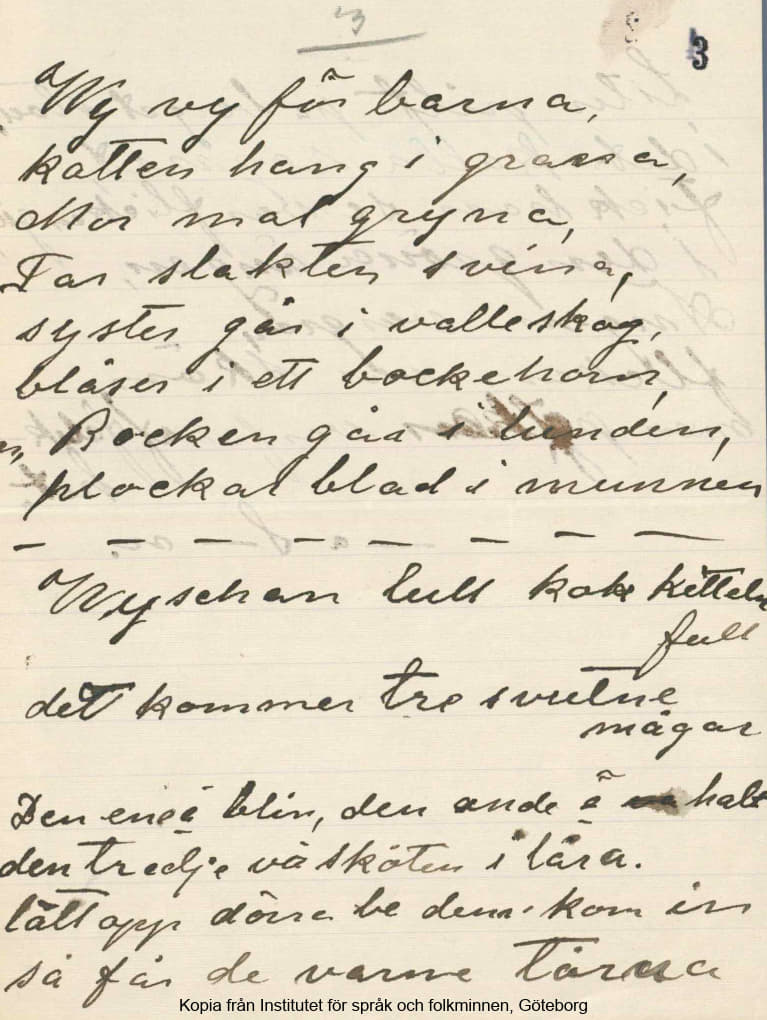 3
3
Wy vy för barna,
katten hang i grana,
Mor mal gryna,
Far slakten svina,
syster går i valleskog,
blåser i ett bockehorn,
Bocken gåa i lunden,
plockar blad i munnen
— — — — — — — — —
Wyschan lull koke kitteln
full
det kommer tre svultne
mågar
Den ene ä blin, den ande ä halt
den tredje vä sköten i låra.
lått opp dörra be dem kom in
så får de varme tårna
Kopia från Institutet för språk och folkminnen, Göteborg